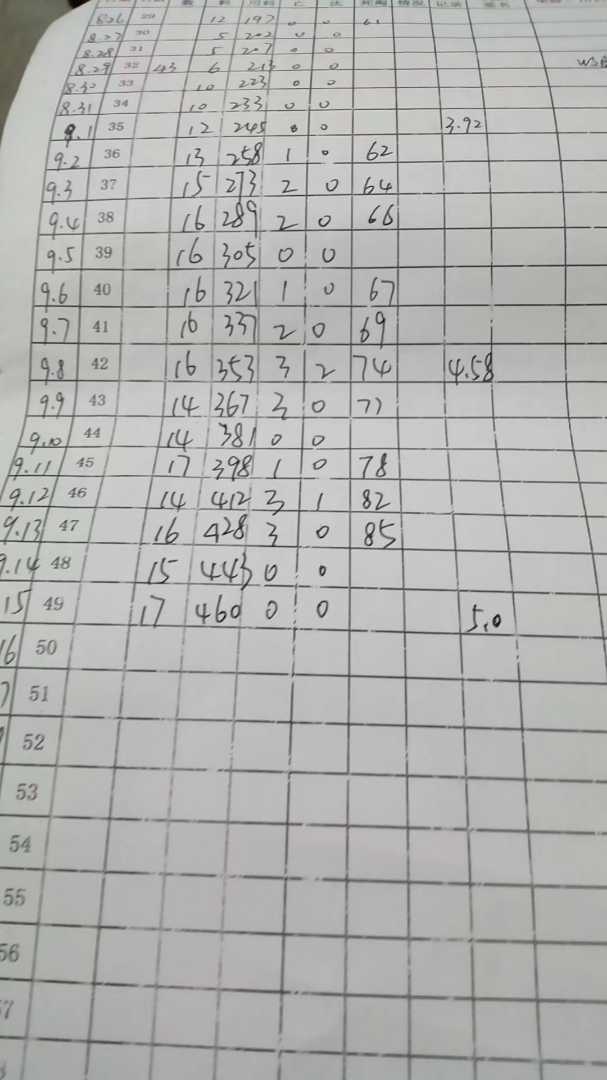 8.26 29 12 197 0 0 61
8.27 30 5 202 0 0
8.28 31 5 207 0 0
8.29 32 43 6 213 0 0
8.30 33 10 223 0 0
8.31 34 10 233 0 0
9.1 35 12 245 0 0 3.92
9.2 36 13 258 1 0 62
9.3 37 15 273 2 0 64
9.4 38 16 289 2 0 66
9.5 39 16 305 0 0
9.6 40 16 321 1 0 67
9.7 41 16 337 2 0 69
9.8 42 16 353 3 2 74 4.58
9.9 43 14 367 3 0 77
9.10 44 14 381 0 0
9.11 45 17 398 1 0 78
9.12 46 14 412 3 1 82
9.13 47 16 428 3 0 85
9.14 48 15 443 0 0
15 49 17 460 0 0 5.0
16 50
51
52
53
54
55
56